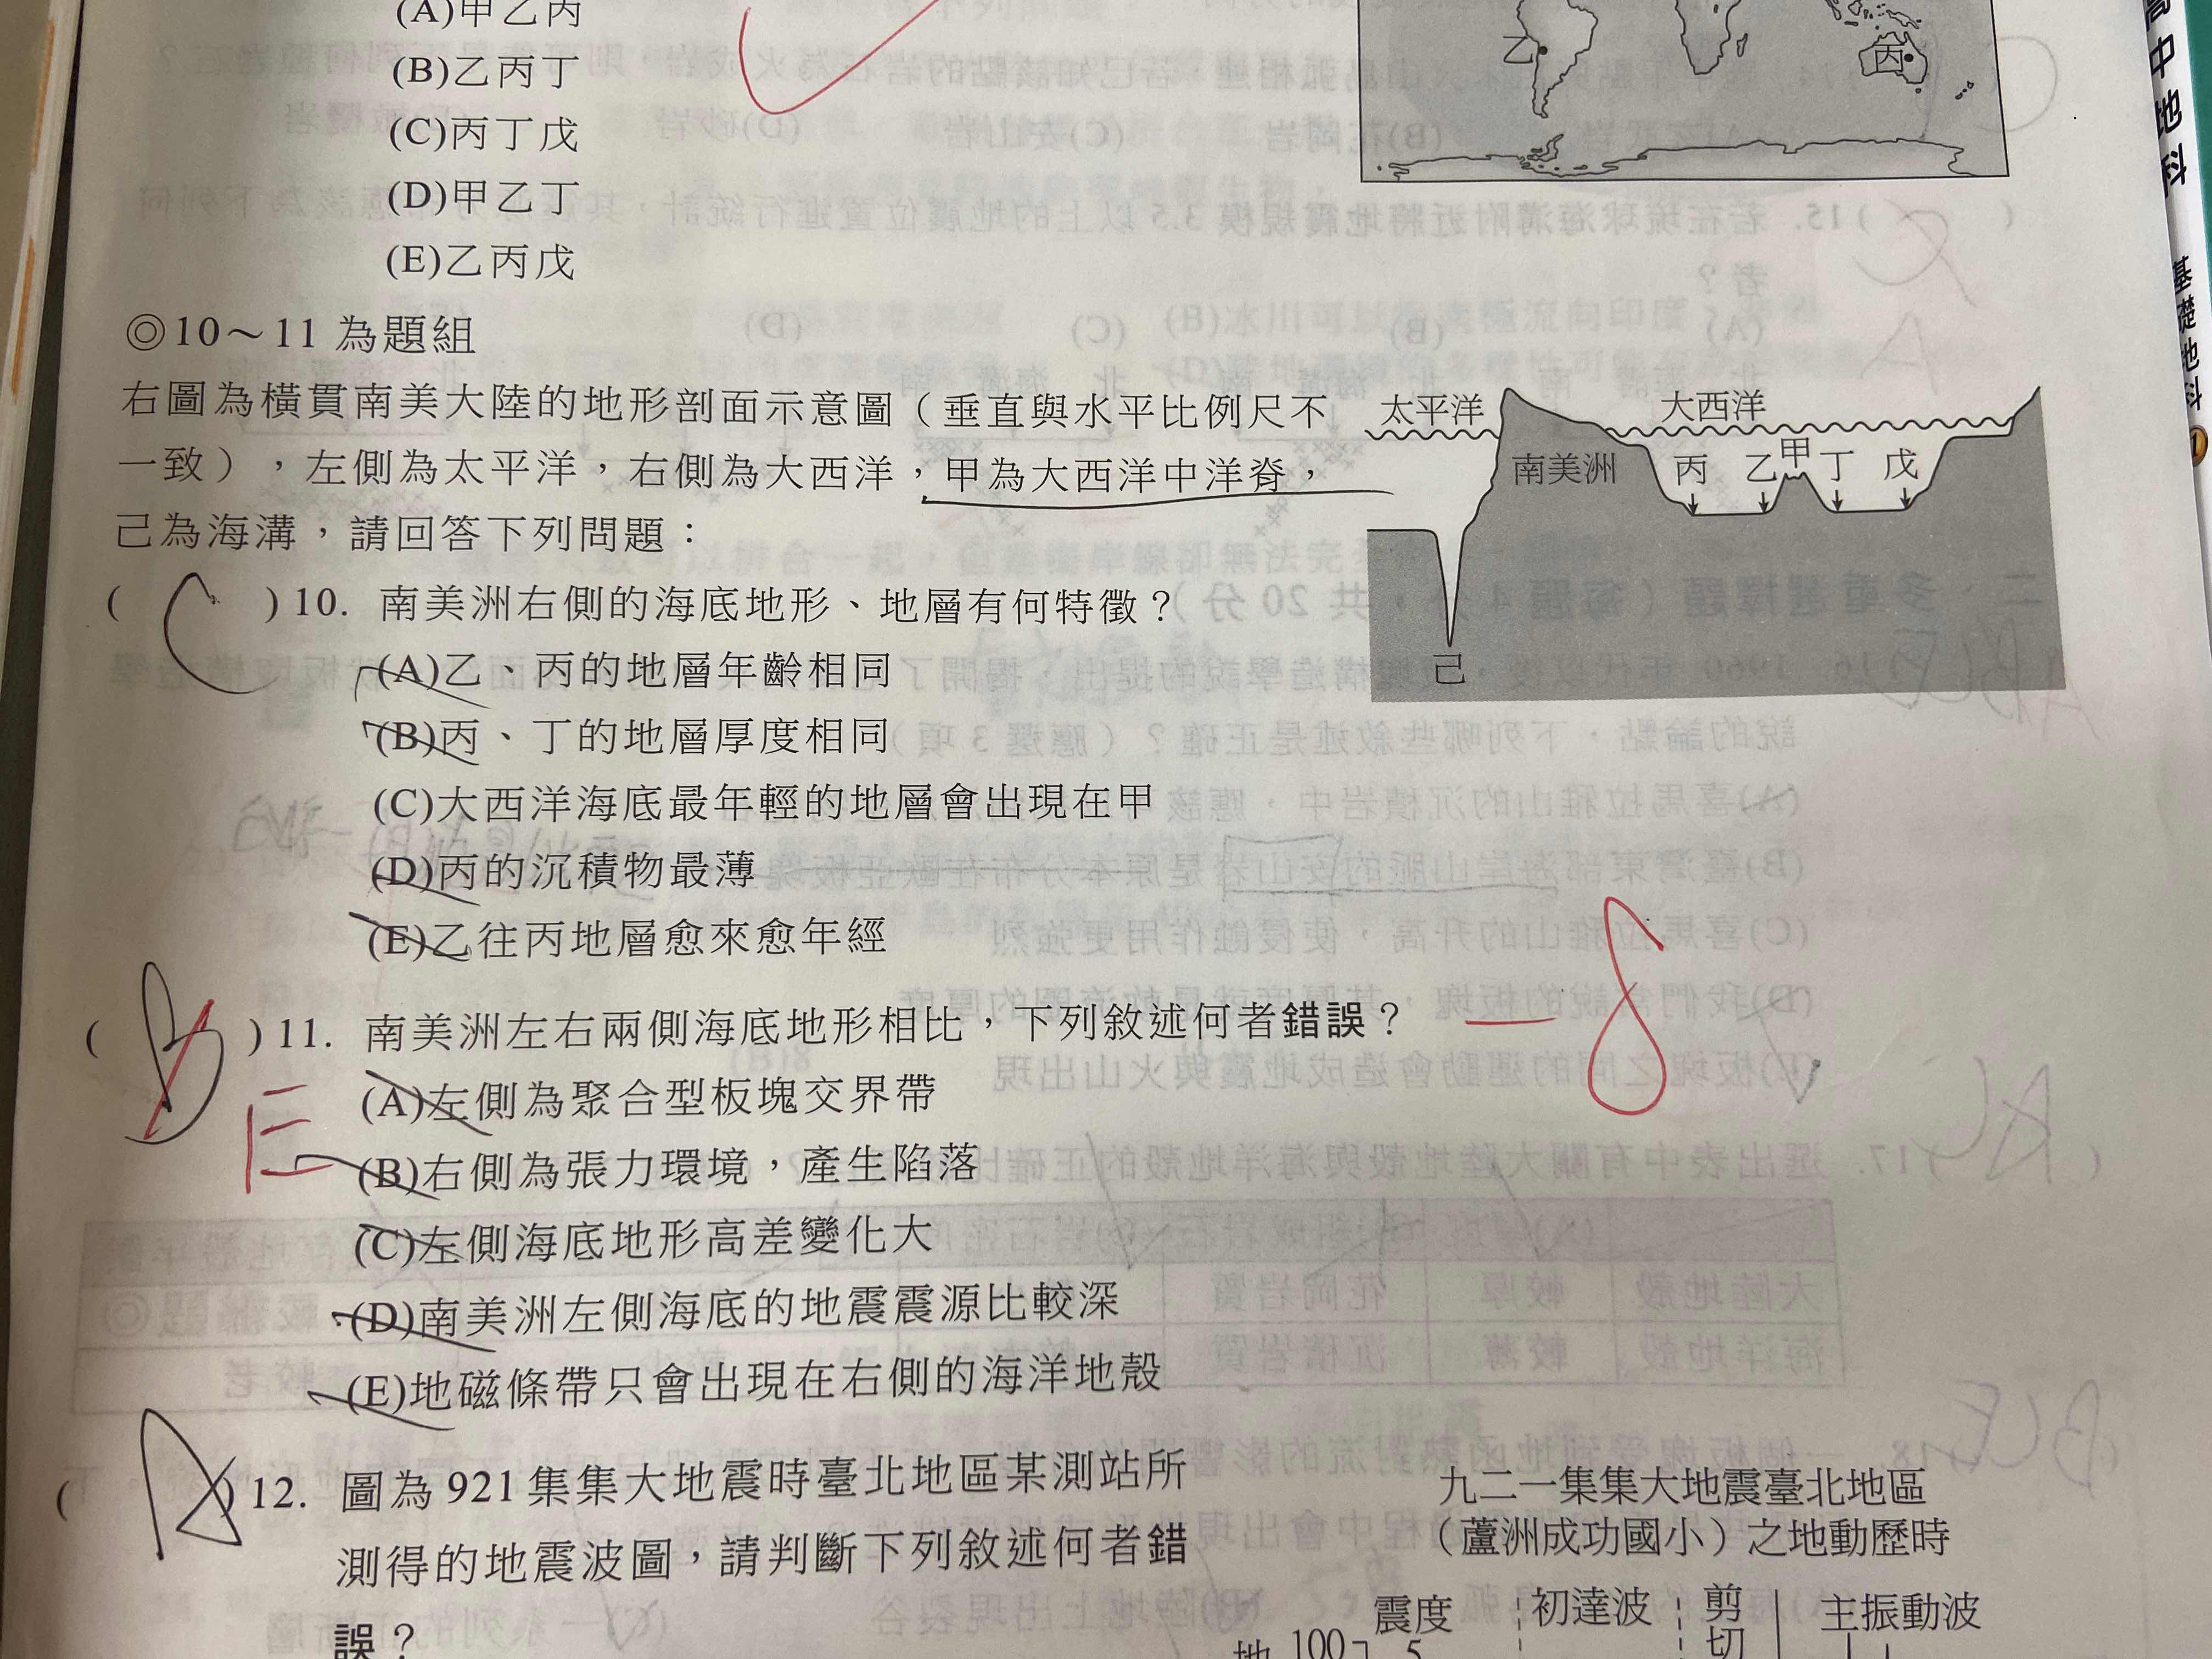 (A)甲乙丙
(B)乙丙丁
(C)丙丁戊
(D)甲乙丁
(E)乙丙戊
乙
丙
高中地科 基礎地科
◎10～11 為題組
右圖為橫貫南美大陸的地形剖面示意圖（垂直與水平比例尺不
一致），左側為太平洋，右側為大西洋，甲為大西洋中洋脊，
己為海溝，請回答下列問題：
太平洋
大西洋
南美洲
丙 乙 甲 丁 戊
己
( C )10. 南美洲右側的海底地形、地層有何特徵？
(A)乙、丙的地層年齡相同
(B)丙、丁的地層厚度相同
(C)大西洋海底最年輕的地層會出現在甲
(D)丙的沉積物最薄
(E)乙往丙地層愈來愈年經
( B )11. 南美洲左右兩側海底地形相比，下列敘述何者錯誤？
E
-8
(A)左側為聚合型板塊交界帶
(B)右側為張力環境，產生陷落
(C)左側海底地形高差變化大
(D)南美洲左側海底的地震震源比較深
(E)地磁條帶只會出現在右側的海洋地殼
( A )12. 圖為 921 集集大地震時臺北地區某測站所
測得的地震波圖，請判斷下列敘述何者錯
誤？
九二一集集大地震臺北地區
（蘆洲成功國小）之地動歷時
震度
初達波
剪切
主振動波
地
100
5